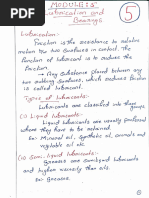 MODULE:5
Lubrication and
Bearings
5
Lubrication:-
Friction is the resistance to relative
motion b/w two surfaces in contact. The
function of lubricant is to reduce the
friction.
→ Any substance placed between any
two rubbing surfaces, which reduces friction
is called lubricant.
Types of lubricants:-
Lubricants are classified into three
(i) Liquid lubricants:-
Liquid lubricants are usually preferred
where they have to be retained.
Ex:- Mineral oil, Synthetic oil, animals
vegetable oil etc.
(ii) Semi-liquid lubricants:-
Greases are semi-liquid lubricants
and higher viscosity than oils.
Ex:- Greases.